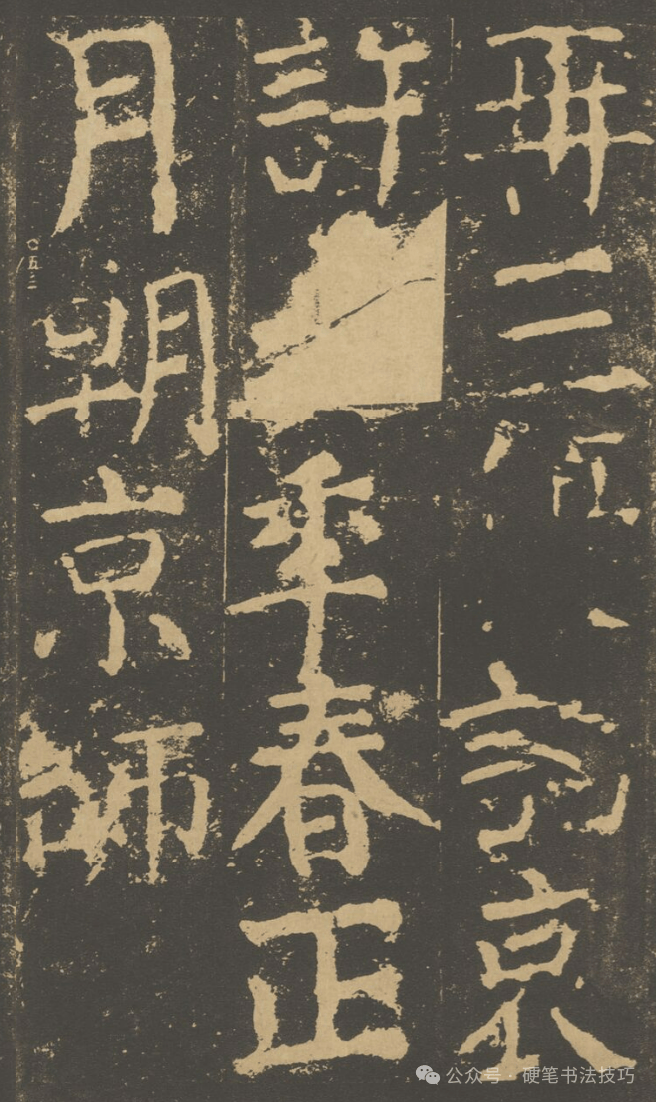 再三哀
許年春正
月朔京師
〇五二
公众号 · 硬笔书法技巧